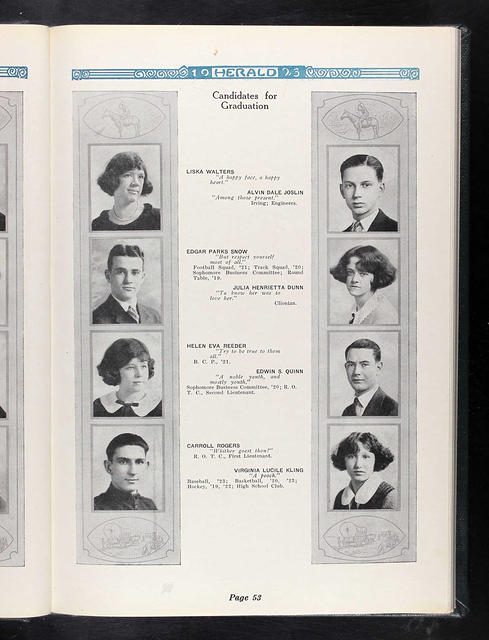 19 HERALD 23
Candidates for
Graduation
LISKA WALTERS
"A happy face, a happy
heart."
ALVIN DALE JOSLIN
"Among those present."
Irving; Engineers.
EDGAR PARKS SNOW
"But respect yourself
most of all."
Football Squad, '21; Track Squad, '20;
Sophomore Business Committee; Round
Table, '19.
JULIA HENRIETTA DUNN
"To know her was to
love her."
Clionian.
HELEN EVA REEDER
"Try to be true to them
all."
B. C. P., '21.
EDWIN S. QUINN
"A noble youth, and
mostly youth."
Sophomore Business Committee, '20; R. O.
T. C., Second Lieutenant.
CARROLL ROGERS
"Whither goest thou?"
R. O. T. C., First Lieutenant.
VIRGINIA LUCILE KLING
"A peach."
Baseball, '23; Basketball, '20, '23;
Hockey, '19, '22; High School Club.
Page 53